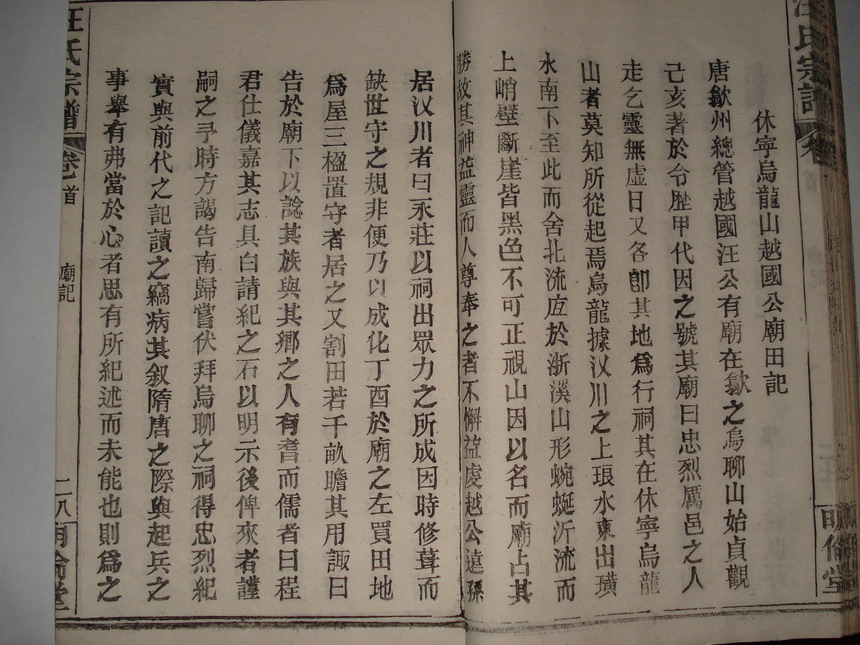 汪氏宗譜
卷首
明倫堂
休寧烏龍山越國公廟田記
唐歙州總管越國汪公有廟在歙之烏聊山始貞觀
己亥著於令歷甲代因之號其廟曰忠烈厲邑之人
走乞靈無虛日又各即其地為行祠其在休寧烏龍
山者莫知所從起焉烏龍據汊川之上琅水東出璜
水南下至此而舍北流於漸溪山形蜿蜒沂流而
上峭壁斷崖皆黑色不可正視山因以名而廟占其
勝故其神益靈而人尊奉之者不懈益虔越公遠孫
居汊川者曰永莊以祠出眾力之所成因時修葺而
缺世守之規非便乃以成化丁酉於廟之左買田地
為屋三楹置守者居之又割田若干畝贍其用諏日
告於廟下以諗其族與其鄉之人有耆而儒者曰程
君仕儀嘉其志具白請紀之石以明示後俾來者謹
嗣之予時方謁告南歸嘗伏拜烏聊之祠得忠烈紀
實與前代之記讀之竊病其叙隋唐之際與起兵之
事舉有弗當於心者思有所紀述而未能也則為之
汪氏宗譜
卷首
廟記
二八
明倫堂